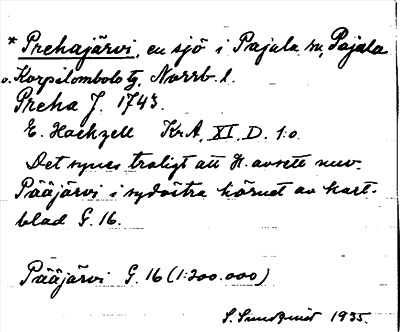 * Prehajärvi, en sjö i Pajala sn, Pajala
o. Korpilombolo tg, Norrb. l.
Preha J. 1743.
E. Hackzell KrA, XI, D. 1:o.
Det synes troligt att H. avsett nuv.
Pääjärvi i sydöstra hörnet av kart-
blad G. 16.
Pääjärvi G. 16 (1:200.000)
S. Sundquist 1935.